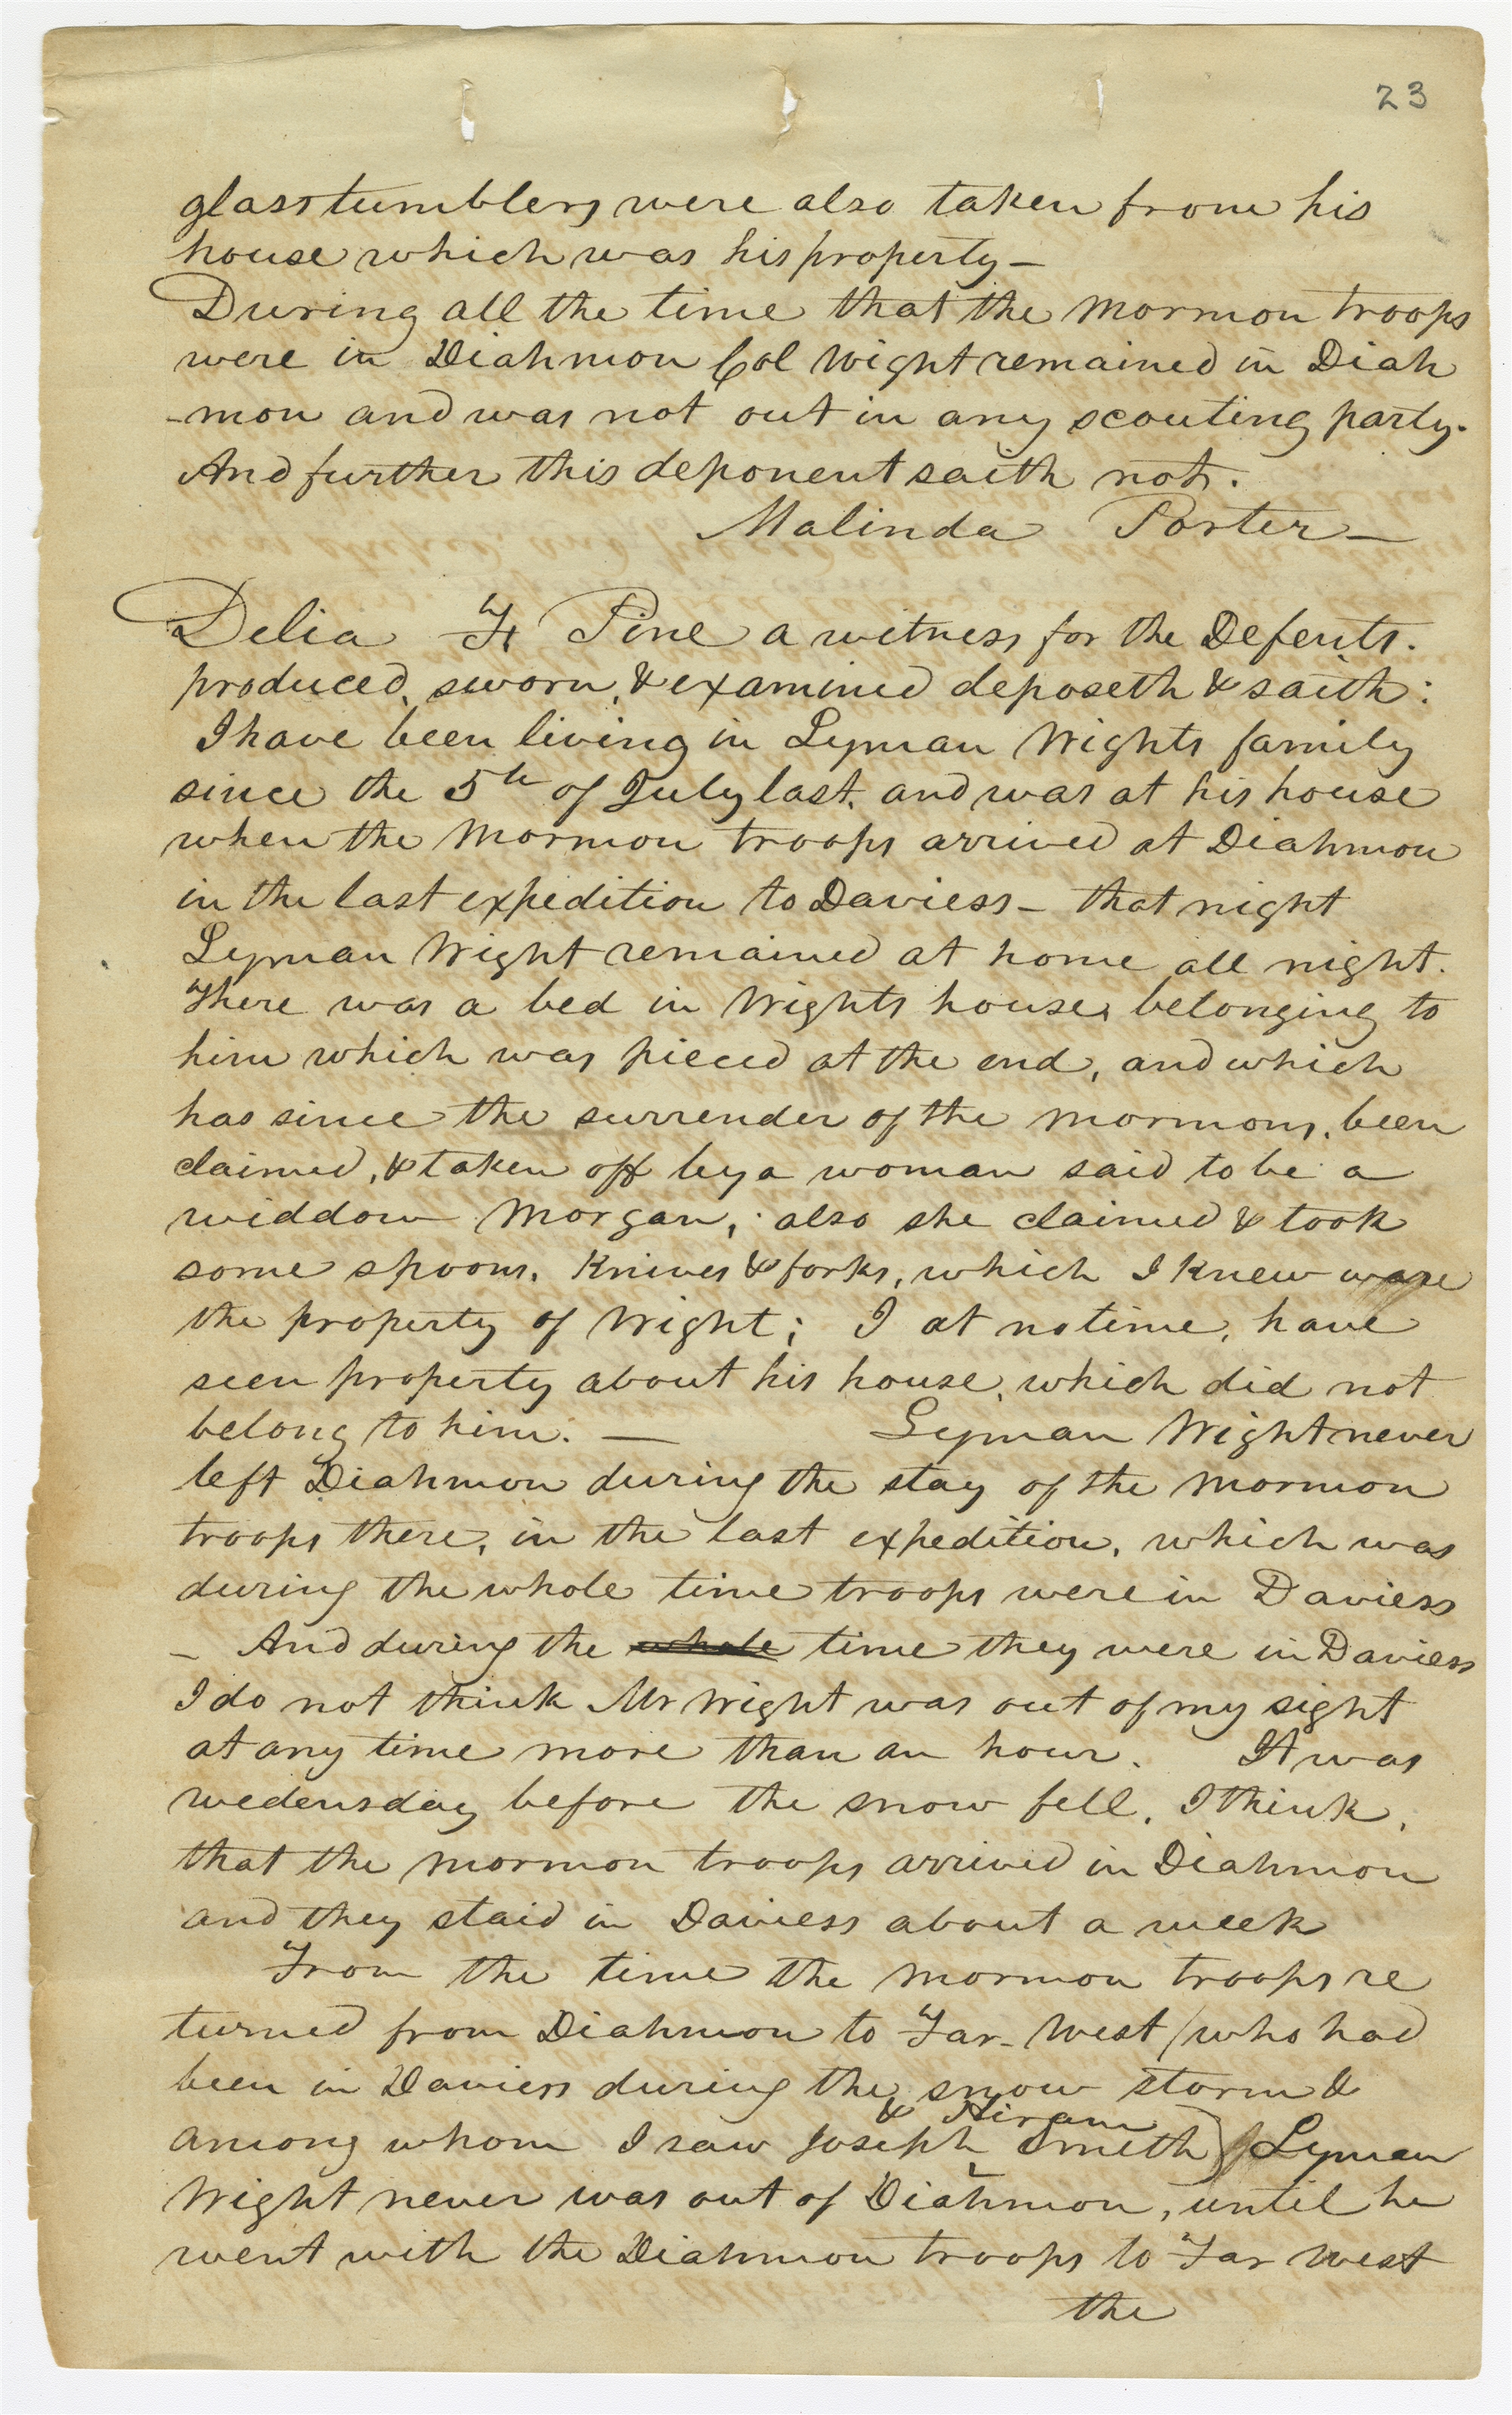 23
glass tumblers were also taken from his
house which was his property –
During all the time that the Mormon troops
were in Diahmon Col Wight remained in Diah
-mon and was not out in any scouting party.
And further this deponent saith not.
Malinda Porter –
Delia F Pine a witness for the Defents.
produced, sworn, & examined deposeth & saith:
I have been living in Lyman Wights family
since the 5th of July last, and was at his house
when the Mormon troops arrived at Diahmon
in the last expedition to Daviess – that night
Lyman Wight remained at home all night.
There was a bed in Wights house, belonging to
him which was pieced at the end, and which
has since the surrender of the mormons, been
claimed, & taken off by a woman said to be a
widdow Morgan, also she claimed & took
some spoons, Knives & forks, which I knew ware
the property of Wight; I at no time, have
seen property about his house, which did not
belong to him. — Lyman Wight never
left Diahmon during the stay of the Mormon
troops there, in the last expedition, which was
during the whole time troops were in Daviess
– And during the whole time they were in Daviess
I do not think Mr Wight was out of my sight
at any time more than an hour. It was
wedensday before the snow fell, I think,
that the mormon troops arrived in Diahmon
and they staid in Daviess about a week
From the time the mormon troops re
turned from Diahmon to Far-West (who had
been in Daviess during the snow storm &
among whom I saw Joseph & Hiram Smith) Lyman
Wight never was out of Diahmon, until he
went with the Diahmon troops to Far West
the